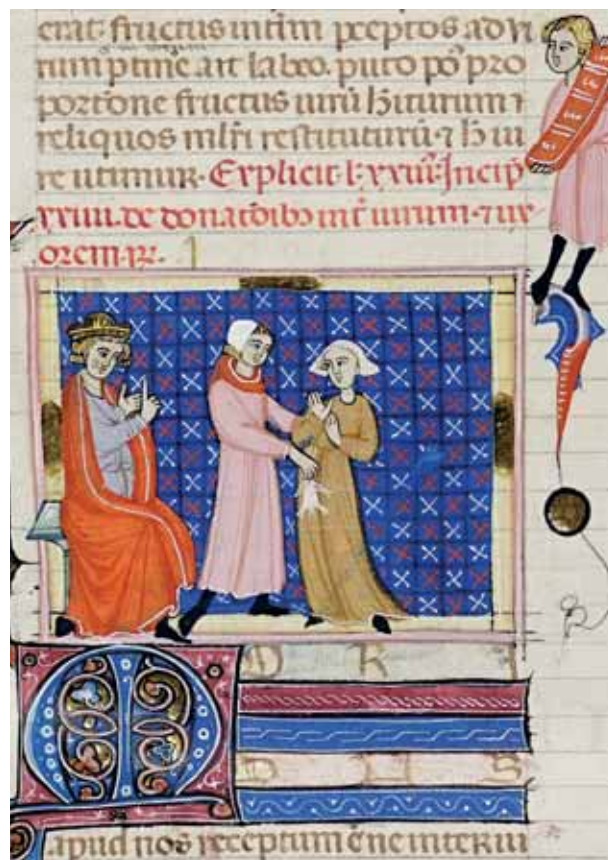 erat· fructus intim pceptos ad vi
rum ptine ait labeo. puto pō pro
portōne fructus uirū hīturum ⁊
reliquos mlr̄i restituturū· ⁊ h̄ iu
re utimur· Explicit· l· xxiii· Incip̄
xxiiii. de donatōib; int̄ uirum· ⁊ ux
orem·
M O R I
B U S
apud nos receptum ē ne inter iu